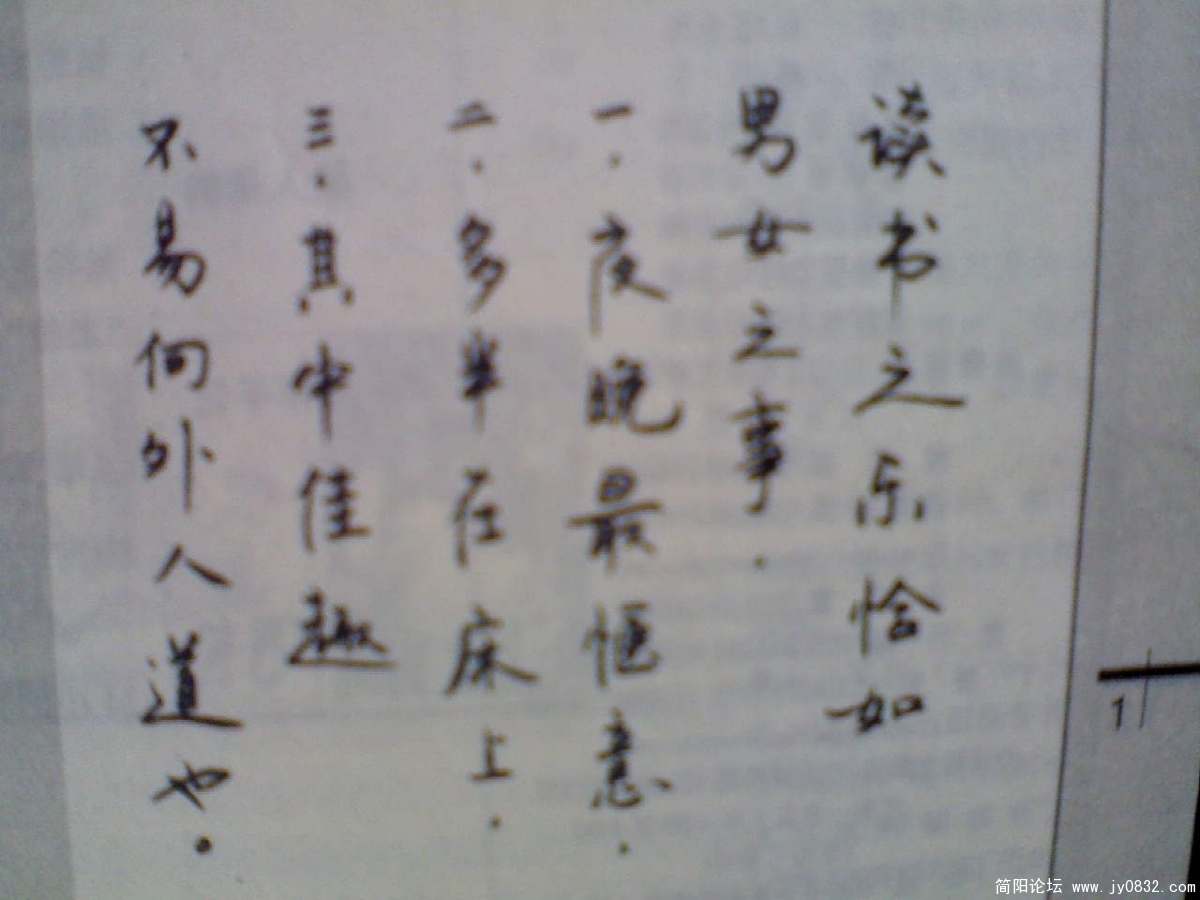 读书之乐恰如
男女之事.
一.夜晚最惬意.
二.多半在床上.
三.其中佳趣
不易向外人道也.
1
简阳论坛 www.jy0832.com